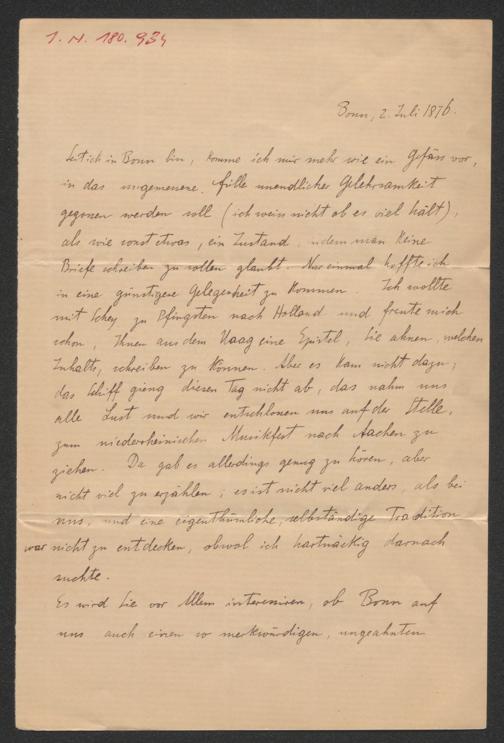 I. N. 180.934
Bonn, 2. Juli 1876.
Seit ich in Bonn bin, komme ich mir mehr wie ein Gefäss vor,
in das ungemessene Fülle unendlicher Gelehrsamkeit
gegossen werden soll (ich weiss nicht ob es viel hält),
als wie sonst etwas, ein Zustand, indem man keine
Briefe schreiben zu sollen glaubt. Nur einmal hoffte ich
in eine günstigere Gelegenheit zu kommen. Ich wollte
mit Schey zu Pfingsten nach Holland und freute mich
schon, Ihnen aus dem Haag eine Epistel, Sie ahnen, welchen
Inhalts, schreiben zu können. Aber es kam nicht dazu;
das Schiff gieng diesen Tag nicht ab, das nahm uns
alle Lust und wir entschlossen uns auf der Stelle,
zum niederrheinischen Musikfest nach Aachen zu
ziehen. Da gab es allerdings genug zu hören, aber
nicht viel zu erzählen; es ist nicht viel anders, als bei
uns, und eine eigenthümliche, selbständige Tradition
war nicht zu entdecken, obwol ich hartnäckig darnach
suchte.
Es wird Sie vor Allem interessiren, ob Bonn auf
uns auch einen so merkwürdigen, ungeahnten